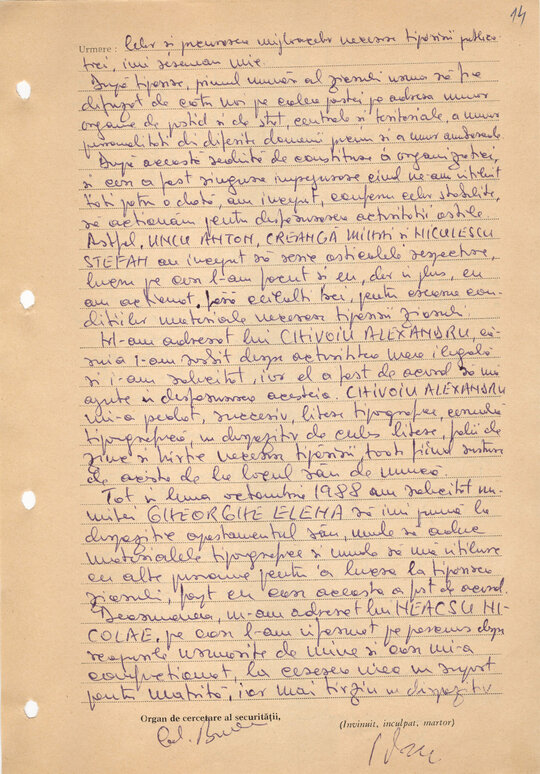 14
Urmere : lelor și procurarea mijloacelor necesare tipăririi publica
ției, îmi revenea mie.
După tipărire, primul număr al ziarului urma să fie
difuzat de către noi pe calea poștei pe adresa unor
organe de partid și de stat, centrale și teritoriale, a unor
personalități din diferite domenii precum și a unor ambasade.
După această ședință de constituire a organizației,
și care a fost singura împrejurare cînd ne-am întîlnit
toți patru o dată, am început, conform celor stabilite,
să acționăm pentru desfășurarea activității ostile.
Astfel, UNCU ANTON, CREANGĂ MIHAI și NICULESCU
STEFAN au început să scrie articolele respective,
lucru pe care l-am făcut și eu, dar în plus, eu
am acționat, fără ceilalți trei, pentru crearea con-
dițiilor materiale necesare tipăririi ziarului.
M-am adresat lui CHIVOIU ALEXANDRU, că-
ruia i-am vorbit despre activitatea mea ilegală
și i-am solicitat, iar el a fost de acord să mă
ajute în desfășurarea acesteia. CHIVOIU ALEXANDRU
mi-a predat, succesiv, litere tipografice, cerneală
tipografică, un dispozitiv de cules litere, folii de
zinc și hîrtie necesare tipăririi, toate fiind sustrase
de acesta de la locul său de muncă.
Tot în luna octombrie 1988 am solicitat nu-
mitei GHEORGHE ELENA să îmi pună la
dispoziție apartamentul său, unde să aduc
materialele tipografice și unde să mă întîlnesc
cu alte persoane pentru a lucra la tipărirea
ziarului, fapt cu care aceasta a fost de acord.
Deasemenea, m-am adresat lui NEACȘU NI-
COLAE, pe care l-am informat pe parcurs despre
scopurile urmărite de mine și care mi-a
confecționat, la cererea mea un suport
pentru matriță, iar mai tîrziu un dispozitiv
Organ de cercetare al securității,
(Învinuit, inculpat, martor)